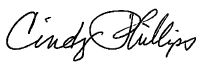 Cindy Phillips